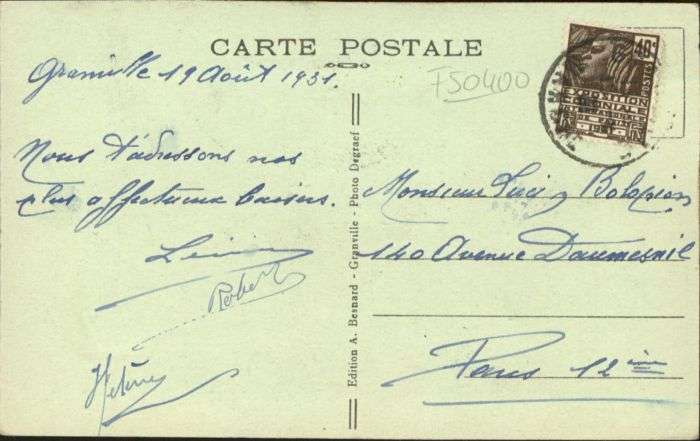 CARTE POSTALE
Granville 19 Août 1931.
F50400
40c
POSTES
EXPOSITION
COLONIALE
PARIS
1931
Nous t'adressons nos
plus affectueux baisers.
Robert
Edition A. Besnard - Granville - Photo Degraef
Monsieur
140 Avenue Daumesnil
Paris 12ème